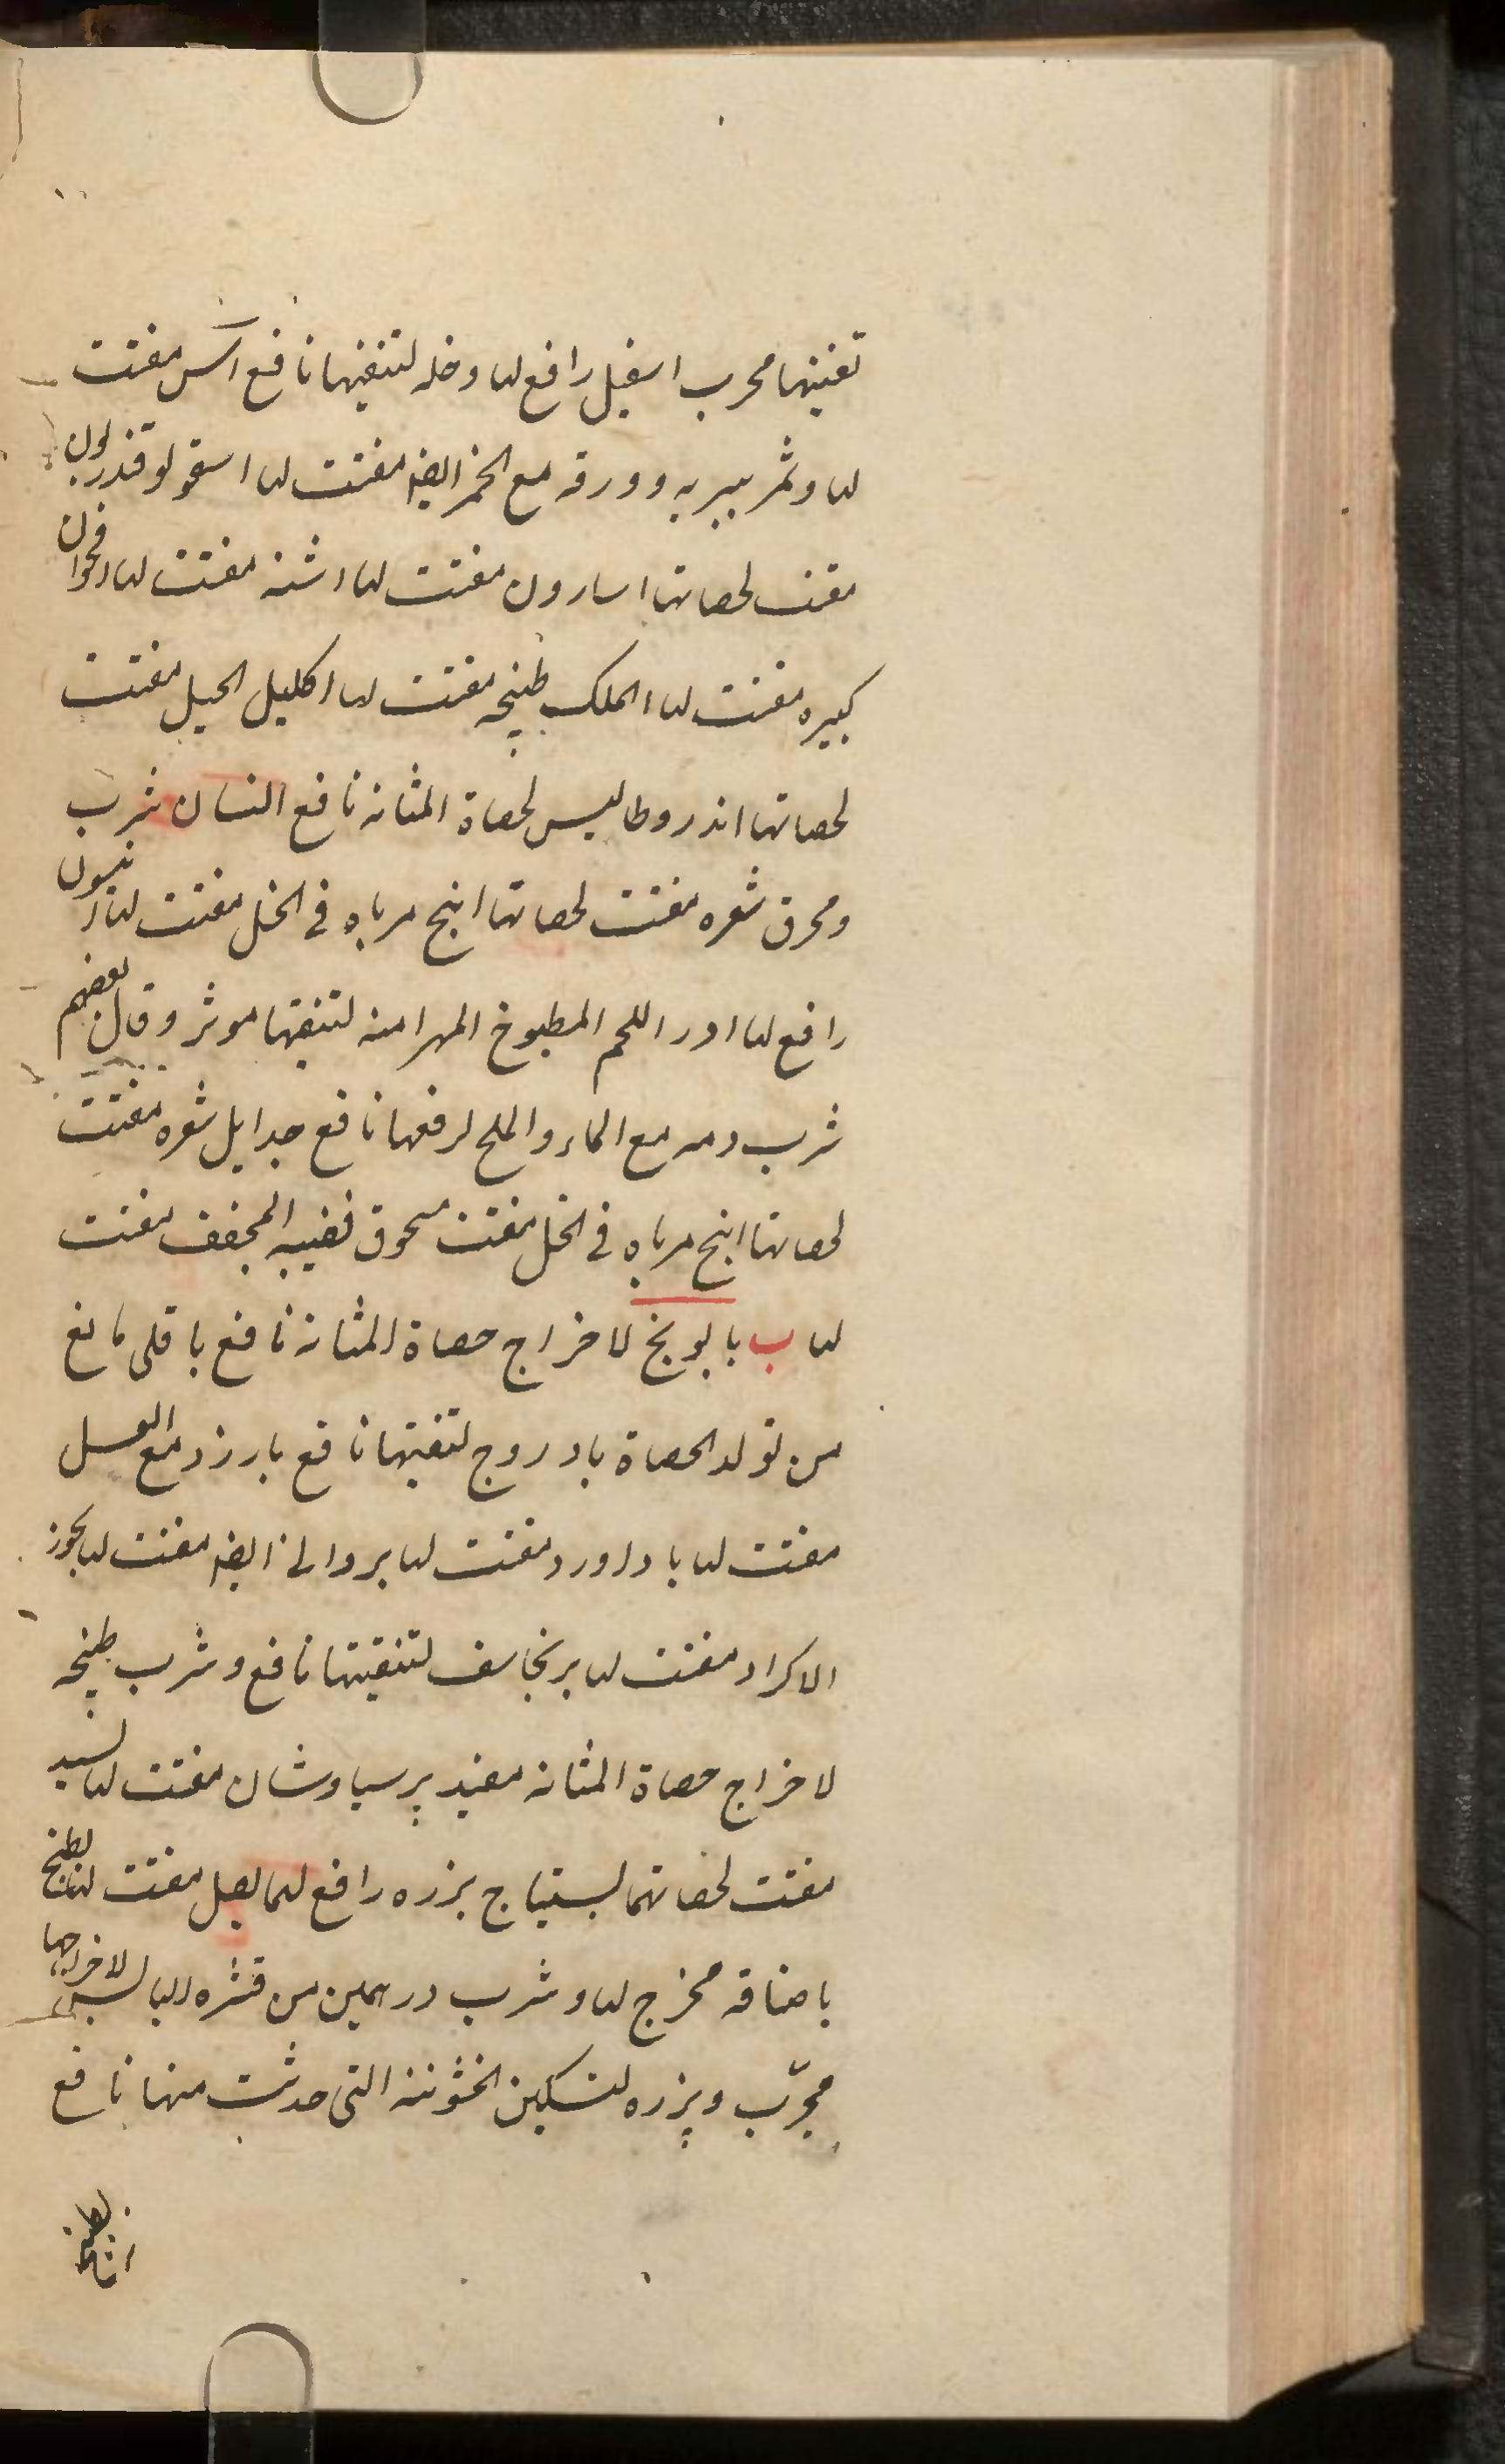 تفتيتها مجرب اسقيل رافع لها وخله لتنقيتها نافع اس مفتت
لها وثمر بيريه وورقه مع الخمر ايضا مفتت لها اسقولوقندريون
مفتت لحصاتها اسارون مفتت لها اشنه مفتت لها اقحوان
كبيره مفتت لها الملك طبيخه مفتت لها اكليل الجبل مفتت
لحصاتها اندروطاليس لحصاة المثانه نافع انسان شرب
ومحرق شعره مفتت لحصاتها ابنج مرباه في الخل مفتت لها انيسون
رافع لها اللحم المطبوخ المهرا منه لتنقيتها موثر وقال بعضهم
شرب دمه مع الماء والملح لرفعها نافع جدا ايل شعره مفتت
لحصاتها ابنج مرباه في الخل مفتت مسحوق قضيبه المجفف مفتت
لها ب بابونج لاخراج حصاة المثانه نافع باقلى مانع
من تولد الحصاة بادروج لتفتيتها نافع بارزد مع العسل
مفتت لها باداورد مفتت لها بردانى ايضا مفتت لها بخور
الاكراد مفتت لها برنجاسف لتنقيتها نافع وشرب طبيخه
لاخراج حصاة المثانه مفيد پرسياوشان مفتت لها
مفتت لحصاتهما بستيناج بزره رافع لهما بصل مفتت لها بطيخ
باضافه مخرج لها وشرب درهمين من قشره اليابس لاخراجها
مجرّب وبزره لتسكين الخشونة التى حدثت منها نافع